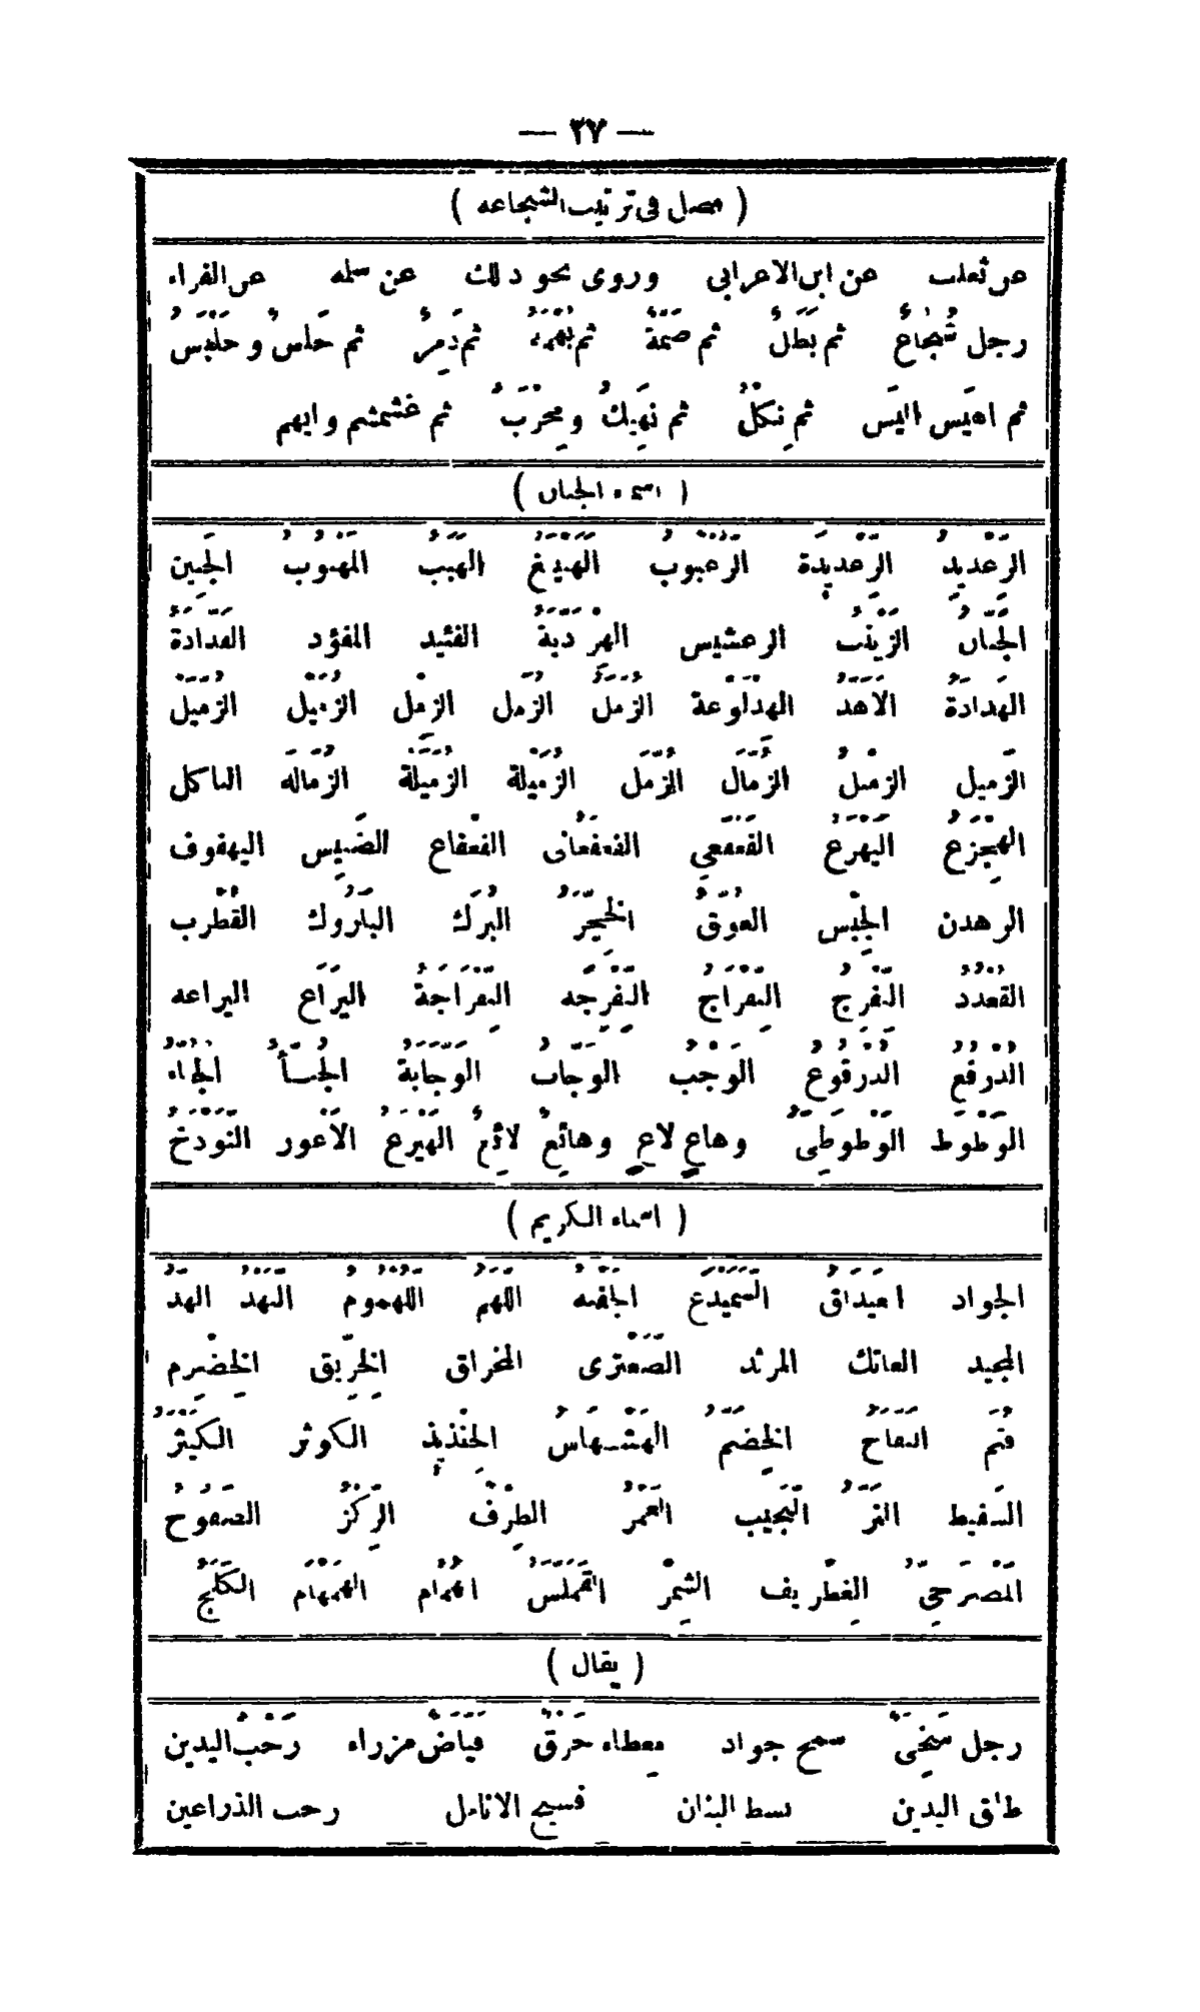 — ٣٧ —
( فصل فى ترتيب الشجاعه )
عن ثعلب عن ابن الاعرابى وروى نحو ذلك عن سلمه عن الفراء
رجل شُجَاعٌ ثم بَطَلٌ ثم صِمَّةٌ ثم بُهْمَةٌ ثم ذَمِرٌ ثم حَلِسٌ و حَلْبَسٌ
ثم اهيَس اليَس ثم نِكْلٌ ثم نَهِيكٌ و مِحْرَبٌ ثم غشمشم وايهم
( اسماء الجبان )
الرِّعْدِيدُ الرِّعْدِيدَةُ الرُّعْبُوبُ الهَيْدَغُ الهَيَبُ المَهْيُوبُ الجَبِين
الجَبَّانُ الزَّيْنَبُ الرعشيس الهِرْدَبَّةُ الفئيد المفؤد الفَدَّادَةُ
الهَدَادَةُ الاَهَدُّ الهِدْلَوْعَة الزُّمَّلُ الزُّمَل الزِمْل الزُّمَّيْل الزُمَيْل
الزَّميل الزِّمْلُ الزُّمَّال الزُّمَّل الزُمَّيْلة الزُّمَيْلَة الزُّمَّاله الناكل
الهِجْزَعُ اليَهْرَعُ القَعْقَعِي القعقعانى القعقاع الضَبِيس اليهفوف
الرهدن الجِبْس العُوَّقُ البُرَك البَارُوك القُطْرب
القُعْدُد النِّفْرِجُ النِّفْرَاجُ النِّفْرِجَه النِّفْرَاجَةُ اليَرَاع اليراعه
الدُرْقُعُ الدُرْقُوعُ الوَجْبُ الوَجَّابُ الوَجَّابَةُ الجُبَّأُ الجُبَّاء
الوَطْوَاط الوَطْوَطِىُّ وهاعٍ لاعٍ وهائِعٌ لائِعٌ الهَيْرَعُ الاَعْوَر التَّوْدَخُ
( اسماء الكريم )
الجواد السَّمَيْدَعُ الجَفْنَهُ اللِّهَمُ اللُّهْمُومُ النَهْدُ الهَدُّ
المجيد العاتك المرثد الصَعْتَرى المخراق الخِرِّيق الخِضْرِم
قُثَم النَفَّاحُ الخِضَمُّ الهَشْهَاسُ الحِنْذِيذ الكوثر الكَيْثَرُ
السَفيط النَزُّ النَّجِيب الغَمْرُ الطِرْف الرِّكْزُ الصَفُوحُ
المَضْرَحِىُّ الغِطْرِيف الشِمْرُ القَمَلَّسُ الهُمَام الهَمْهَام
( يقال )
رجل سَخِىٌّ سمح جواد مِعطاء خِرْقٌ فَيَّاضٌ مزراء رَحْبُ اليدين
طلق اليدين بسط البنان فسيح الانامل رحب الذراعين